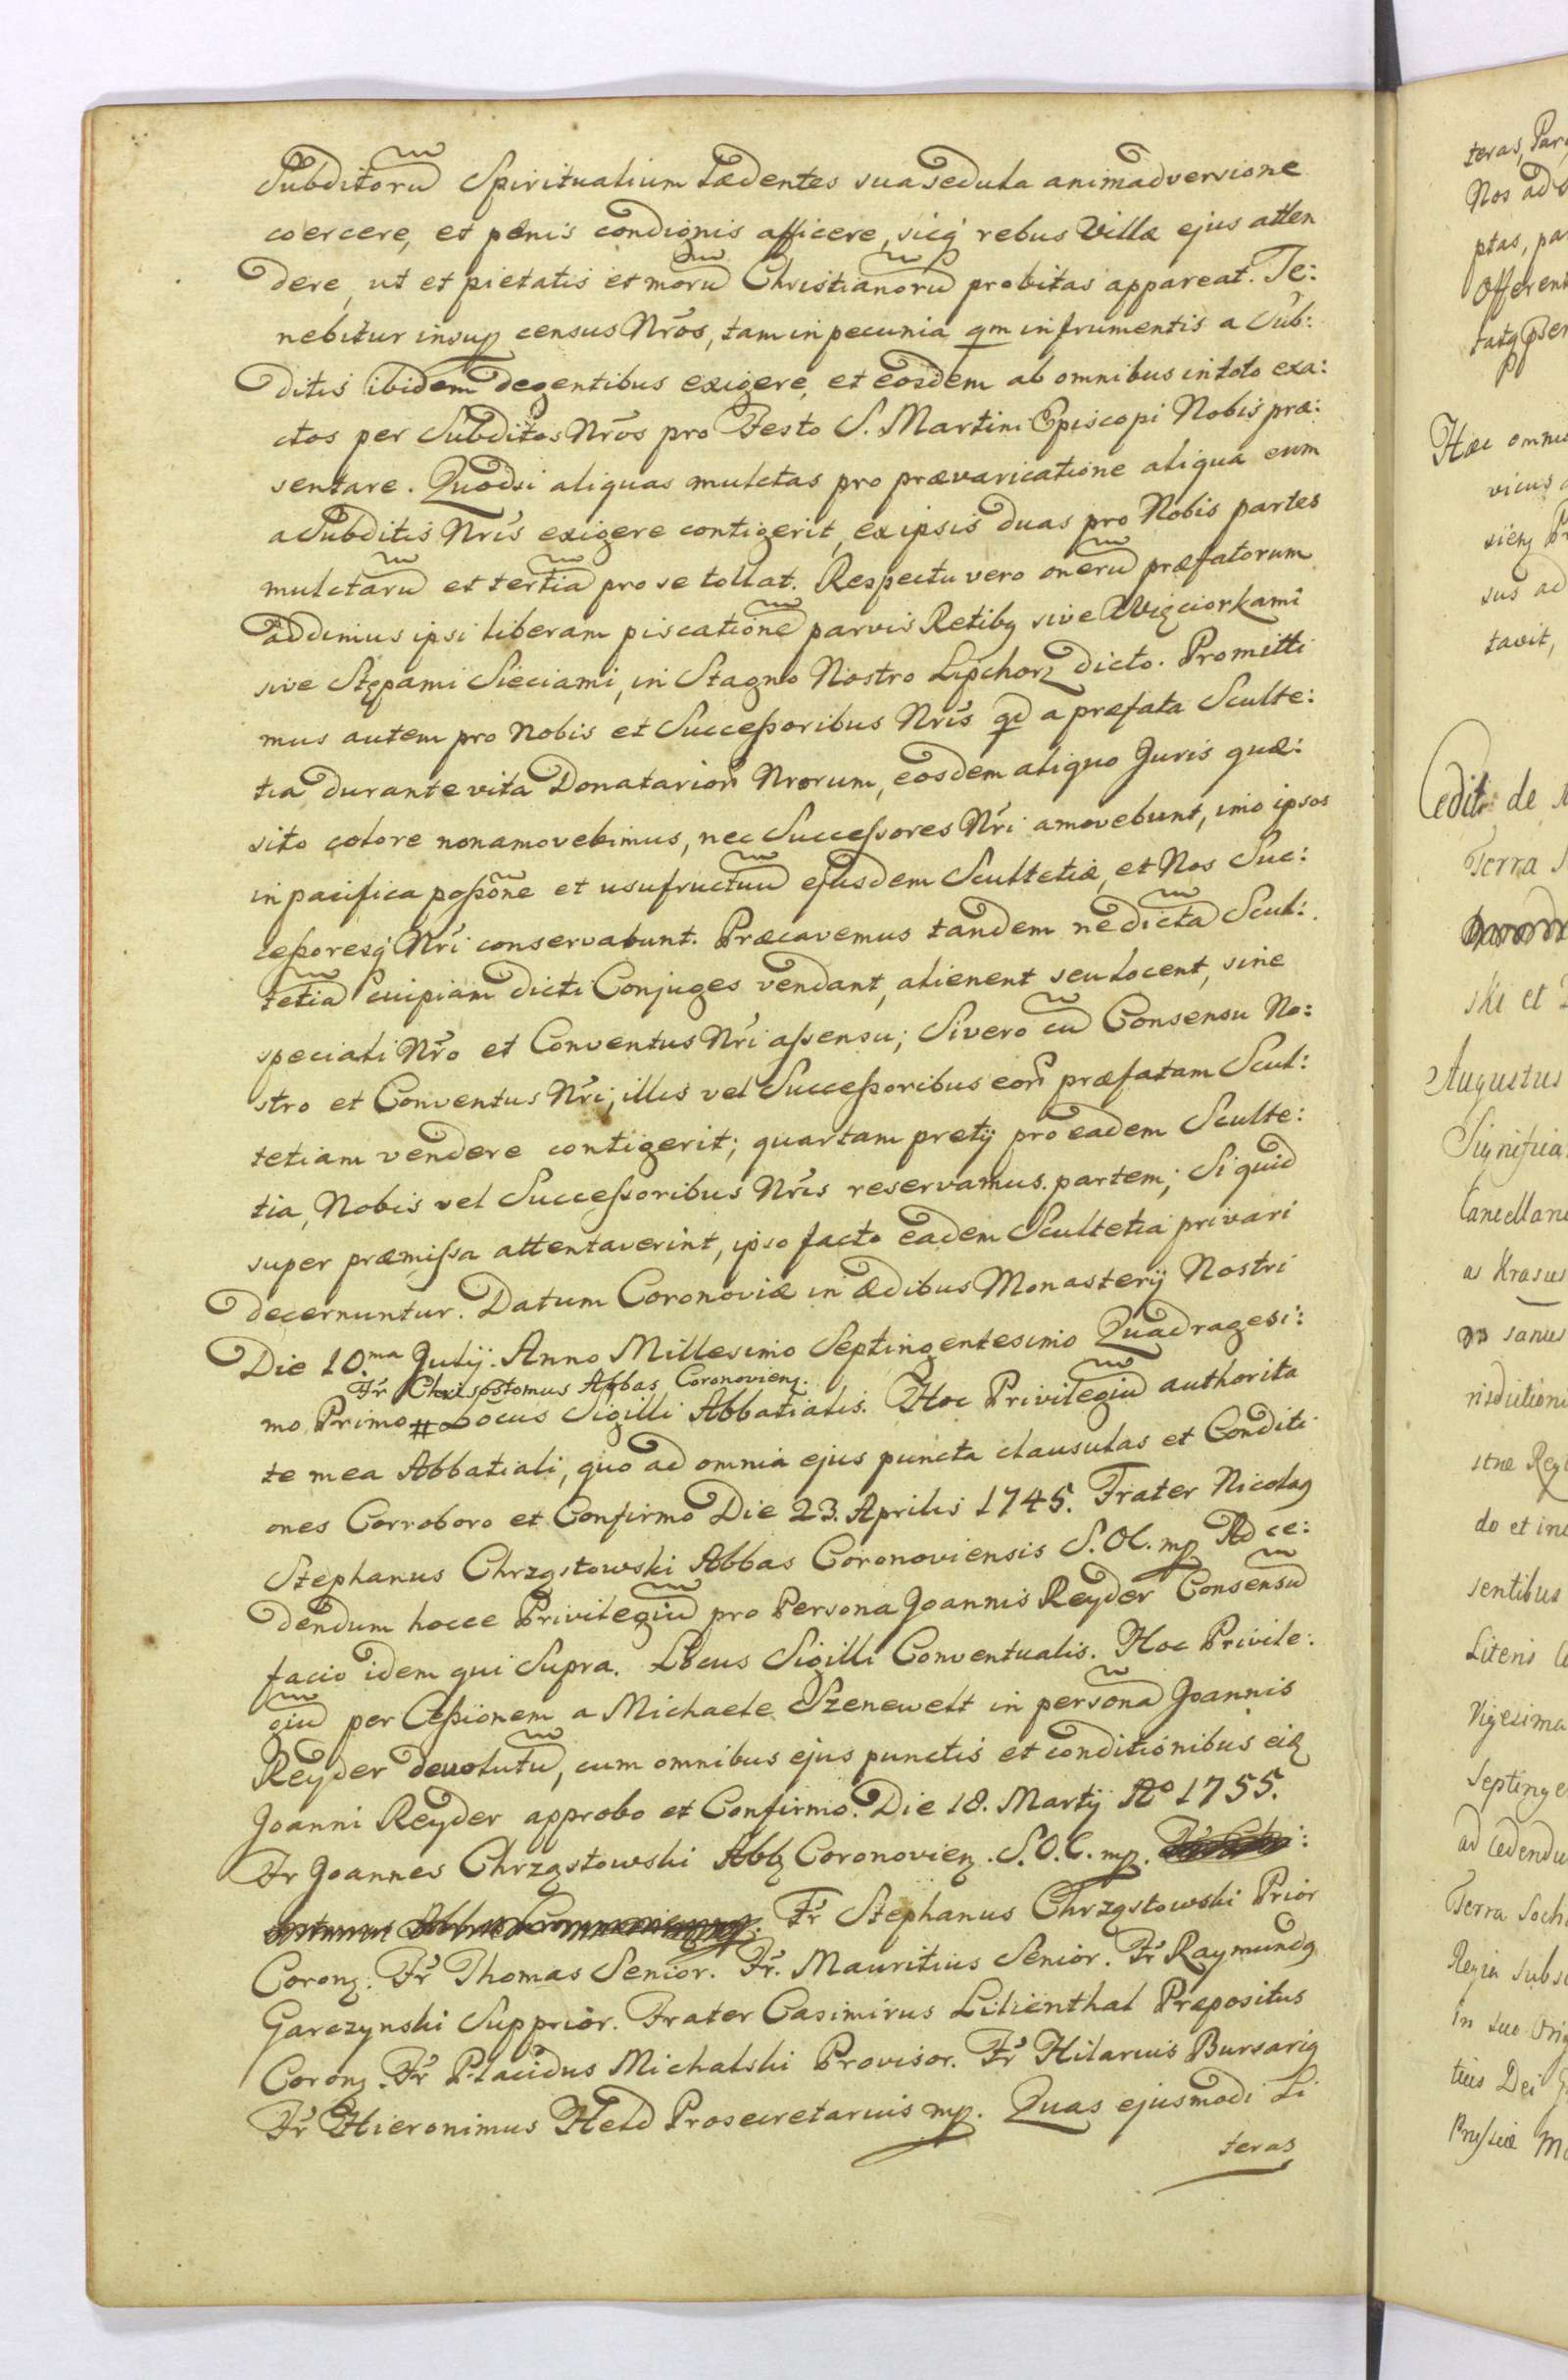 Subditorũ Spiritualium Lædentes sua sedula animadversione
coercere, et pœnis condignis afficere, sicq́ rebus Villæ ejus atten
dere, ut et pietatis et morũ Christianorũ probitas appareat. Te:
nebitur insup census Nrõs, tam in pecunia qm in frumentis a Sub:
ditis ibidem degentibus exigere, et eosdem ab omnibus in toto exa:
ctos per Subditos Nrõs pro Festo S. Martini Episcopi Nobis præ:
sentare. Quodsi aliquas mulctas pro prævaricatione aliqua eum
a Subditis Nrĩs exigere contigerit, ex ipsis duas pro Nobis partes
mulctarũ et tertiã pro se tollat. Respectu vero onerũ præfatorum
addimus ipsi liberam piscationẽ parvis Retibq sive Więciorkami
sive Stępami Sieciami, in Stagno Nostro Lipchorz dicto. Promitti
mus autem pro Nobis et Successoribus Nrĩs qd a præfata Sculte:
tia durante vita Donatarior Nrorum, eosdem aliquo Juris quæ:
sito colore non amovebimus, nec Successores Nrĩ amovebunt, imo ipsos
in pacifica possõne et usufructuũ ejusdem Scultetiæ, et Nos Suc:
cessoresq́ Nrĩ conservabunt. Præcavemus tandem ne dictã Scul:
tetiã cuipiam dicti Conjuges vendant, alienent seu locent, sine
speciali Nrõ et Conventus Nrĩ assensu; Si vero cũ Consensu No:
stro et Conventus Nrĩ, illis vel Successoribus eor præfatam Scul:
tetiam vendere contigerit; quartam pretij pro eadem Sculte:
tia, Nobis vel Successoribus Nrĩs reservamus partem; Si quid
super præmissa attentaverint, ipso facto eadem Scultetia privari
decernuntur. Datum Coronoviæ in Ædibus Monasterij Nostri
Die 10.ma Julij. Anno Millesimo Septingentesimo Quadragesi:
Fr Chrisostomus Abbas Coronovienq.
mo Primo # Locus Sigilli Abbatialis. Hoc Privilegiũ authorita
te mea Abbatiali, quo ad omnia ejus puncta clausulas et Conditi
ones Corroboro et Confirmo Die 23. Aprilis 1745. Frater Nicolaq
Stephanus Chrząstowski Abbas Coronoviensis S.O.C. mp Ad ce:
dendum hocce Privilegiũ pro Persona Joannis Reyder Consensũ
facio idem qui Supra. Locus Sigilli Conventualis. Hoc Privile:
giũ per Cessionem a Michaele Szenewelt in personã Joannis
Reyder devolutũ, cum omnibus ejus punctis et conditionibus eiq
Joanni Reyder approbo et Confirmo. Die 18. Martij Ao 1755.
Fr Joannes Chrząstowski Abbq Coronovienq. S.O.C. mp.
Fr Stephanus Chrząstowski Prior
Coronq. Fr Thomas Senior. Fr. Mauritius Senior. Fr Raymundq
Garczynski Supprior. Frater Casimirus Lilienthal Præpositus
Coronq. Fr Placidus Michalski Provisor. Fr Hilarius Bursariq
Fr Hieronimus Held Prosecretarius mp. Quas ejusmodi Li
teras